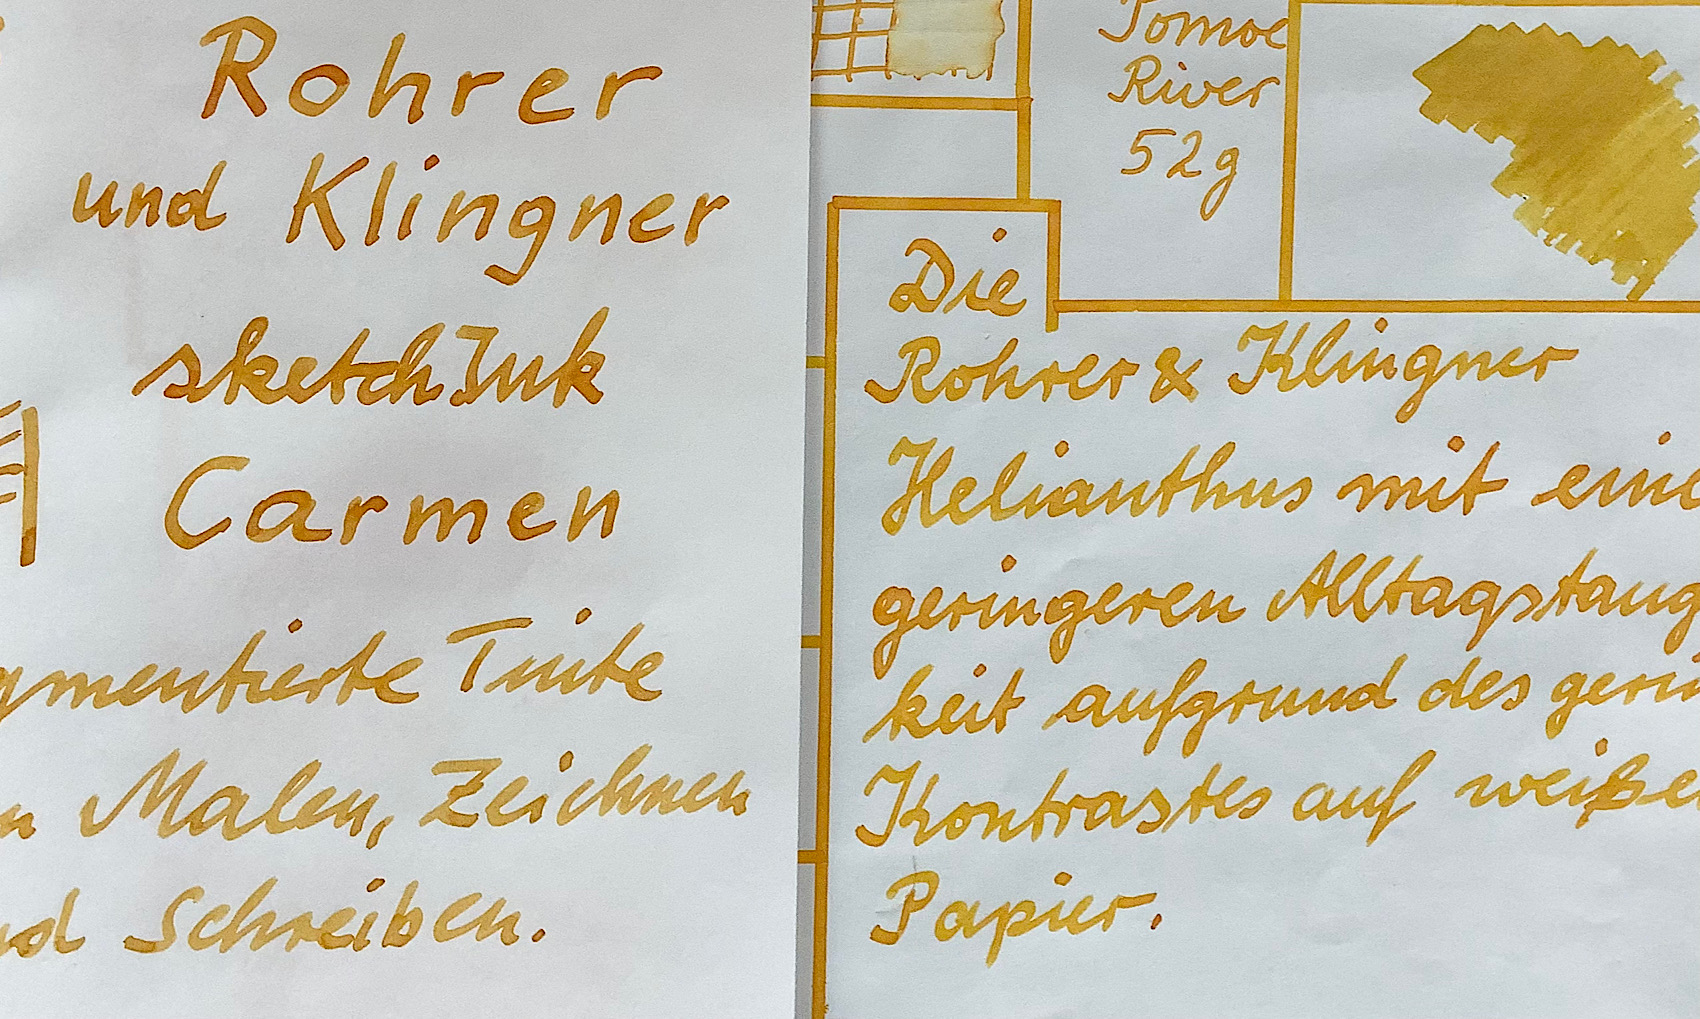 Rohrer
und Klingner
sketchInk
Carmen
gmentierte Tinte
n Malen, Zeichnen
nd Schreiben.
Tomoe
River
52g
Die
Rohrer & Klingner
Helianthus mit eine
geringeren Alltagstaug
keit aufgrund des gerin
Kontrastes auf weiße
Papier.